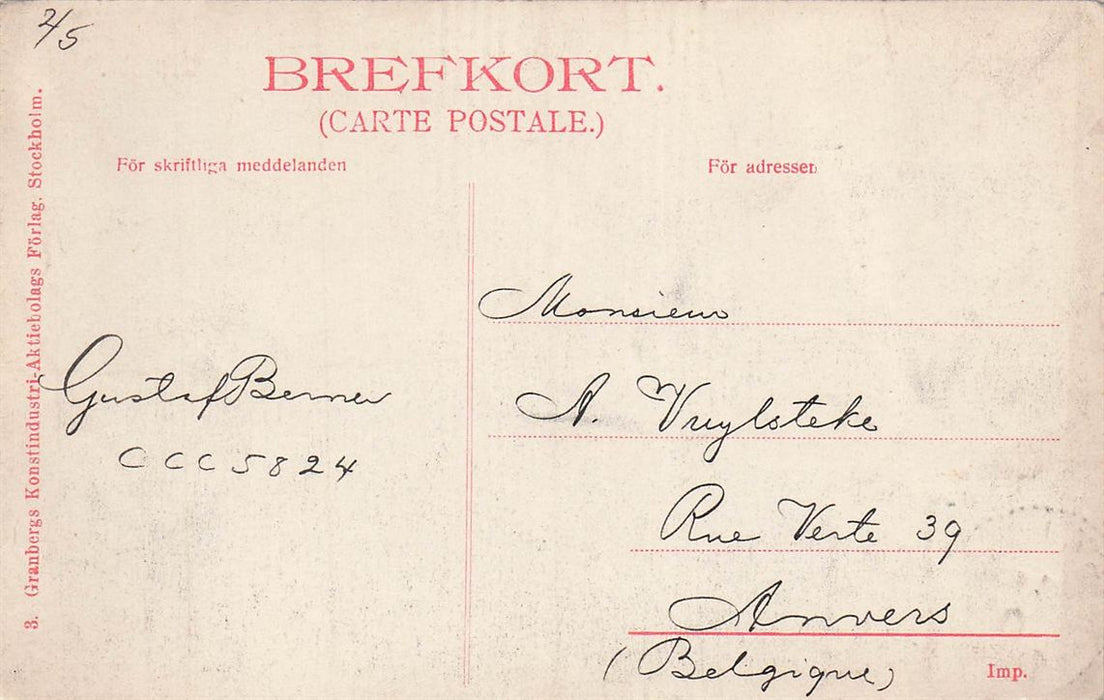 2/5
BREFKORT.
(CARTE POSTALE.)
För skriftliga meddelanden
För adressen
3. Granbergs Konstindustri-Aktiebolags Förlag, Stockholm.
Gustaf Berner
CCC5824
Monsieur
A. Vuylsteke
Rue Verte 39
Anvers
(Belgique)
Imp.